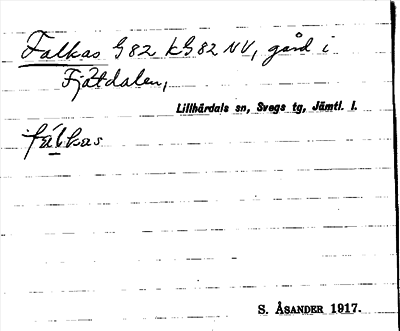 Falkas G82 kG82 NV, gård i
Fjätdalen,
Lillhärdals sn, Svegs tg, Jämtl. l.
fálkas
S. ÅSANDER 1917.